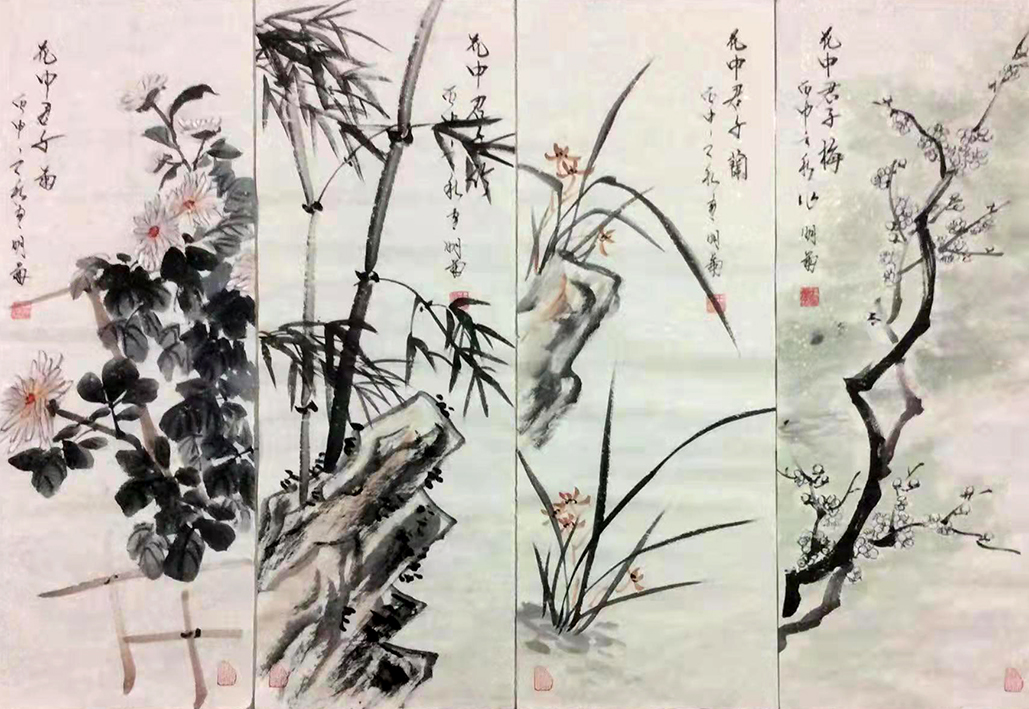 花中君子梅
丙申之秋作 明菊
花中君子蘭
丙申之秋 明菊
花中君子竹
丙申之秋 明菊
花中君子菊
丙申之秋 明菊